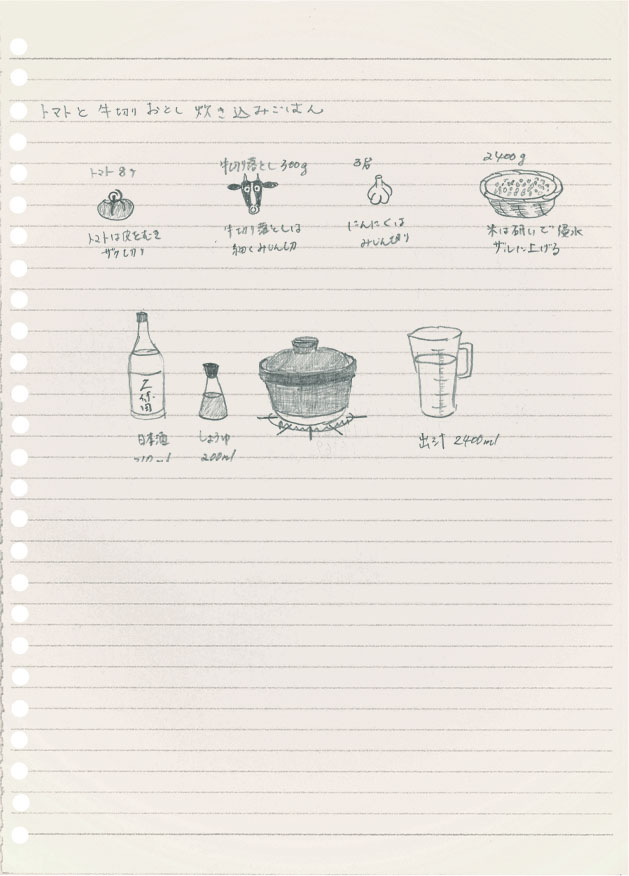 トマトと 牛切りおとし 炊き込みごはん
トマト 8ケ
牛切り落とし 300g
2400g
トマトは皮をむき
ザク切り
牛切り落としは
細くみじん切
にんにくは
みじん切り
米は研いで 浸水
ザルに上げる
久保田
日本酒
しょうゆ
200ml
出汁 2400ml